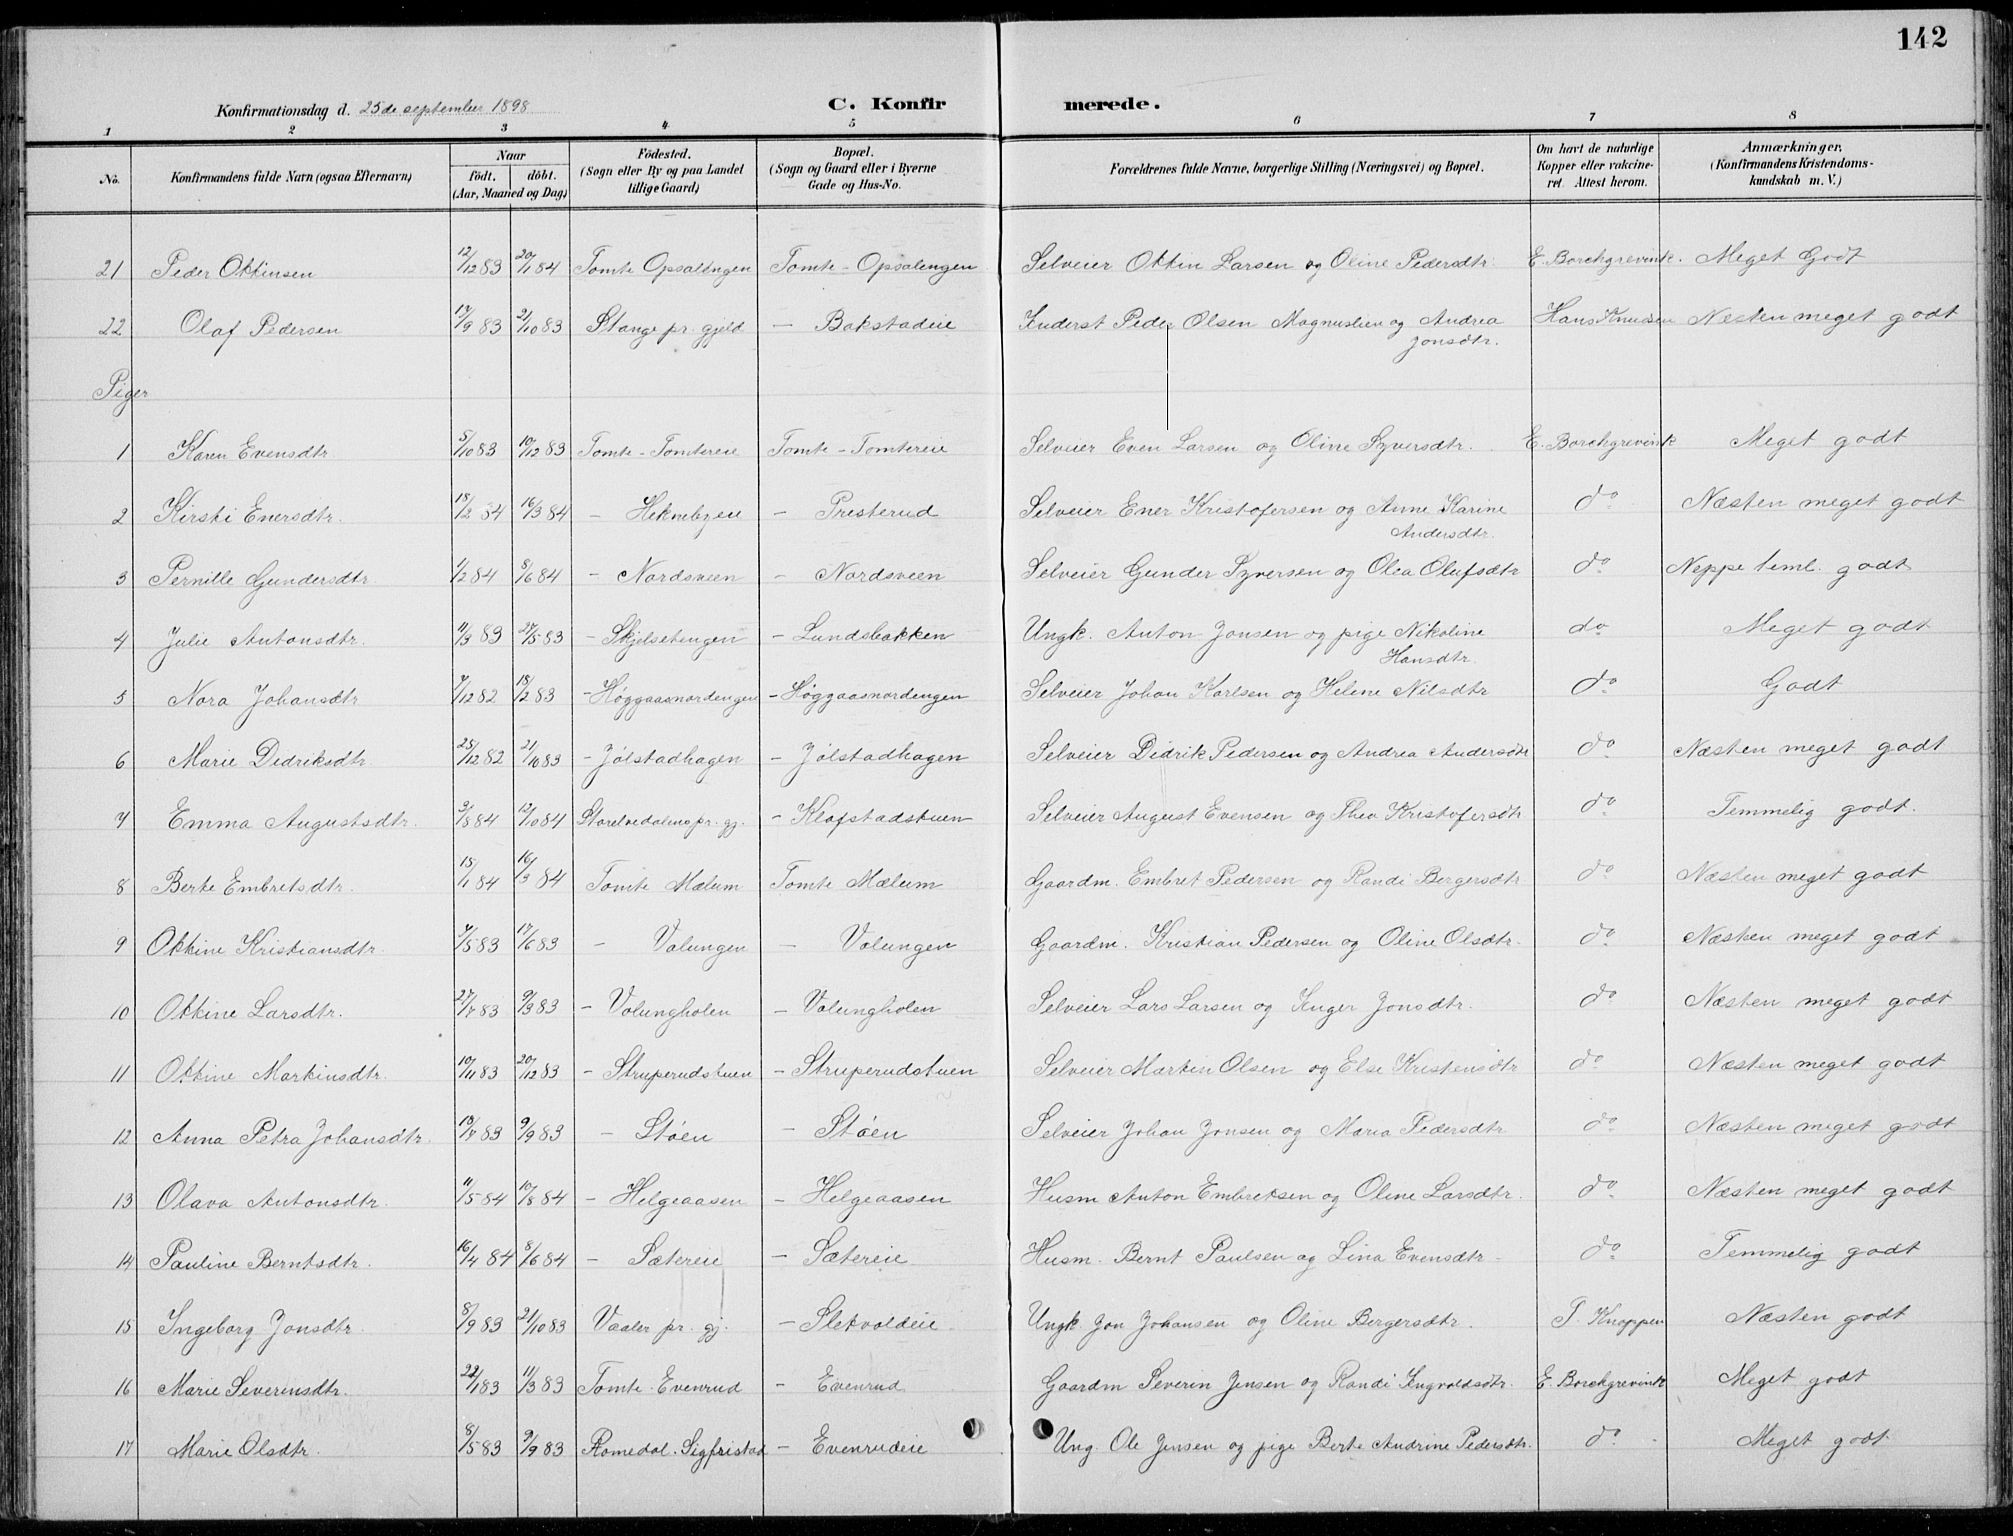 142
Konfirmationsdag d. 25de september 1898
C. Konfirmerede.
1 2 3 4 5 6 7 8
No. Konfirmandens fulde Navn (ogsaa Efternavn) Naar födt. döbt. (Aar, Maaned og Dag) Födested. (Sogn eller By og paa Landet tillige Gaard) Bopæl. (Sogn og Gaard eller i Byerne Gade og Hus-No. Forældrenes fulde Navne, borgerlige Stilling (Næringsvei) og Bopæl. Om havt de naturlige Kopper eller vakcineret. Attest herom. Anmærkninger. (Konfirmandens Kristendomskundskab m. V.)
21 Peder Ottinsen 12/12 83 20/1 84 Tomte Opsalengen Tomte - Opsalengen Selveier Ottin Larsen og Oline Pedersdtr. E. Borchgrevink. Meget Godt
22 Olaf Pedersen 17/9 83 21/10 83 Stange pr. gjeld - Bakstadeie Inderst Peder Olsen Magnuslien og Andrea Jonsdtr. Hans Knudsen Næsten meget godt
Piger
1 Karen Evensdtr. 5/10 83 10/12 83 Tomte - Tomtereie Tomte - Tomtereie Selveier Even Larsen og Oline Syversdtr. E. Borchgrevink Meget godt
2 Kirsti Enersdtr. 18/2 84 16/3 84 - Heknebyeie - Presterud Selveier Ener Kristofersen og Anne Karine Andersdtr. do Næsten meget godt
3 Pernille Gundersdtr. 1/2 84 8/6 84 - Nordsveen - Nordsveen Selveier Gunder Syversen og Olea Olufsdtr do Neppe teml. godt
4 Julie Antonsdtr. 11/3 83 27/5 83 - Skjelsetengen - Lundsbakken Ungk. Anton Jonsen og pige Nikoline Hansdtr. do Meget godt
5 Nora Johansdtr 7/12 82 18/2 83 - Høggaasnordengen - Høggaasnordengen Selveier Johan Karlsen og Helene Nilsdtr do Godt
6 Marie Didriksdtr. 25/12 82 21/10 83 - Jølstadhagen - Jølstadhagen Selveier Didrik Pedersen og Andrea Andersdtr do Næsten meget godt
7 Emma Augustsdtr. 3/5 84 12/10 84 Storelvedalens pr. gj. - Klofstadstuen Selveier August Evensen og Thea Kristofersdtr do Temmelig godt.
8 Berte Embretsdtr. 15/1 84 16/3 84 Tomte Mælum Tomte Mælum Gaardm. Embret Pedersen og Randi Bergersdtr do Næsten meget godt
9 Ottine Kristiansdtr. 7/5 83 17/6 83 - Volungen - Volungen Gaardm. Kristian Pedersen og Oline Olsdtr. do Næsten meget godt
10 Ottine Larsdtr. 27/7 83 9/3 83 - Volungholen - Volungholen Selveier Lars Larsen og Inger Jonsdtr. do Næsten meget godt
11 Ottine Martinsdtr. 10/11 83 20/12 83 - Struperudstuen - Struperudstuen Selveier Martin Olsen og Else Kristensdtr do Næsten meget godt
12 Anna Petra Johansdtr. 17/7 83 9/9 83 - Støen - Støen Selveier Johan Jonsen og Maria Pedersdtr do Næsten meget godt
13 Olava Antonsdtr. 11/5 84 10/8 84 - Helgeaasen - Helgeaasen Husm Anton Embretsen og Oline Larsdtr. do Næsten meget godt
14 Pauline Berntsdtr. 16/4 84 8/6 84 - Sætereie - Sætereie Husm. Bernt Paulsen og Lina Evensdtr - do Temmelig godt
15 Ingeborg Jonsdtr. 8/9 83 21/10 83 Vaaler pr. gj. - Sletvoldeie Ungk. Jon Johansen og Oline Bergersdtr. P. Knoppen Næsten godt
16 Marie Severinsdtr. 22/1 83 11/3 83 Tomte - Evenrud - Evenrud Gaardm Severin Jensen og Randi Ingvoldsdtr. E. Borchgrevink Meget godt
17 Marie Olsdtr. 8/5 83 9/9 83 Romedal - Sigfristad - Evenrudeie Ung. Ole Jensen og pige Berte Andrine Pedersdtr. do Meget godt